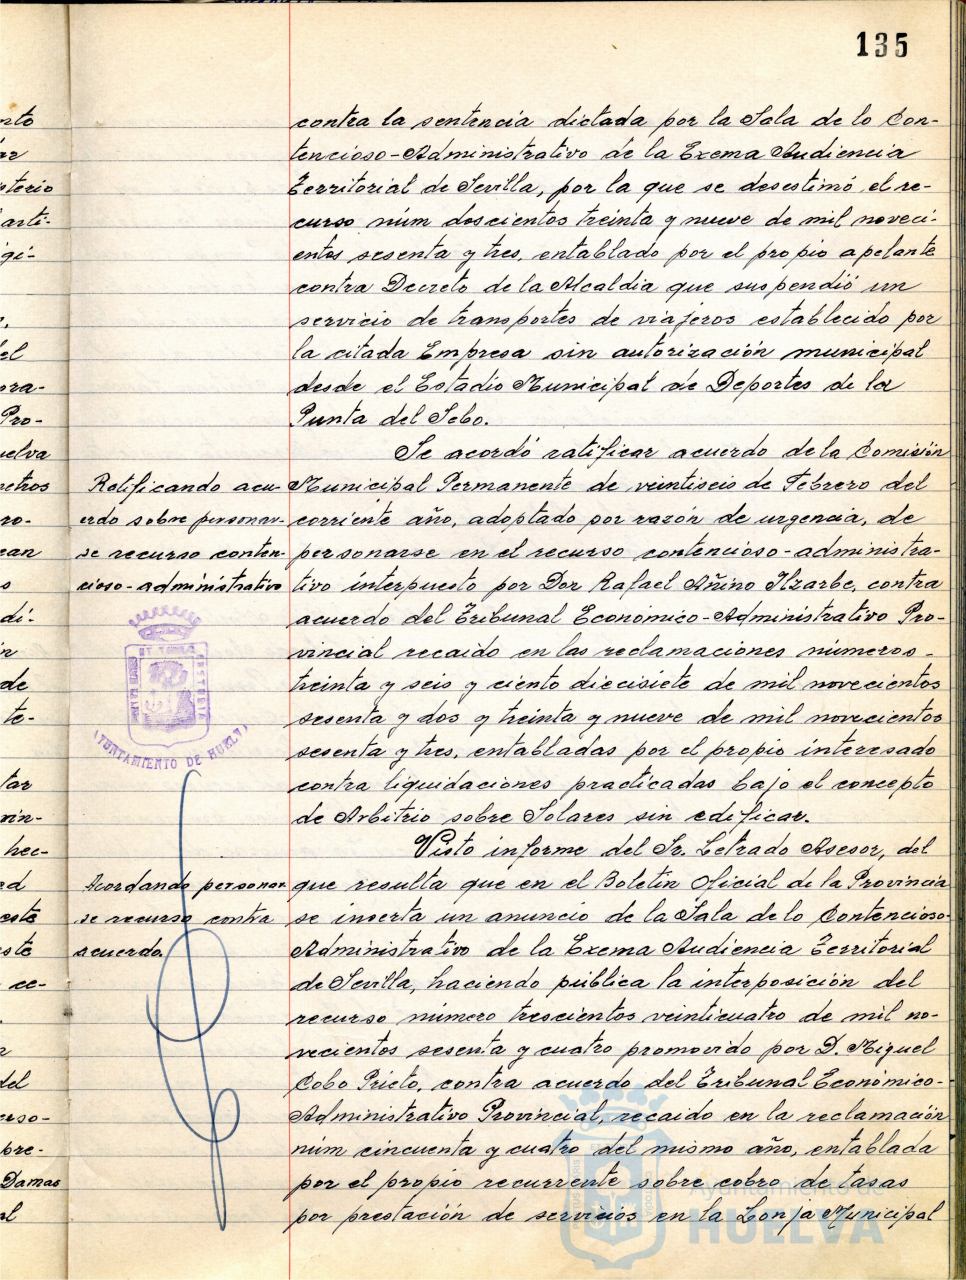 135
contra la sentencia dictada por la Sala de lo Con-
tencioso-Administrativo de la Exema Audiencia
Territorial de Sevilla, por la que se desestimó el re-
curso núm doscientos treinta y nueve de mil noveci-
entos sesenta y tres, entablado por el propio apelante
contra Decreto de la Alcaldia que suspendió un
servicio de transportes de viajeros establecido por
la citada Empresa sin autorización municipal
desde el Estadio Municipal de Deportes de la
Punta del Sebo.
Se acordó ratificar acuerdo de la Comisión
Municipal Permanente de veintiseis de Febrero del
corriente año, adoptado por razón de urgencia, de
personarse en el recurso contencioso-administra-
tivo interpuesto por Don Rafael Añino Ilzarbe, contra
acuerdo del Tribunal Económico-Administrativo Pro-
vincial recaido en las reclamaciones números-
treinta y seis y ciento diecisiete de mil novecientos
sesenta y dos y treinta y nueve de mil novecientos
sesenta y tres, entabladas por el propio interesado
contra liquidaciones practicadas bajo el concepto
de Arbitrio sobre Solares sin edificar.
Visto informe del Sr. Letrado Asesor, del
que resulta que en el Boletin Oficial de la Provincia
se inserta un anuncio de la Sala de lo Contencioso-
Administrativo de la Exema Audiencia Territorial
de Sevilla, haciendo pública la interposición del
recurso número trescientos veinticuatro de mil no-
vecientos sesenta y cuatro promovido por D. Miguel
Cobo Prieto, contra acuerdo del Tribunal Económico-
Administrativo Provincial, recaido en la reclamación
núm cincuenta y cuatro del mismo año, entablada
por el propio recurrente sobre cobro de tasas
por prestación de servicios en la Lonja Municipal
Ratificando acu-
erdo sobre personar-
se recurso conten-
cioso-administrativo
AYUNTAMIENTO DE HUELVA
Acordando personar
se recurso contra
acuerdo.
nto
ar
sterio
arti-
gi-
el
ora-
Pro-
uelva
metros
ro-
can
s
di-
n
de
te-
tar
vin-
hec-
ed
este
ste
ce-
r
del
urso-
bre-
Damas
al
Ayuntamiento de
HUELVA